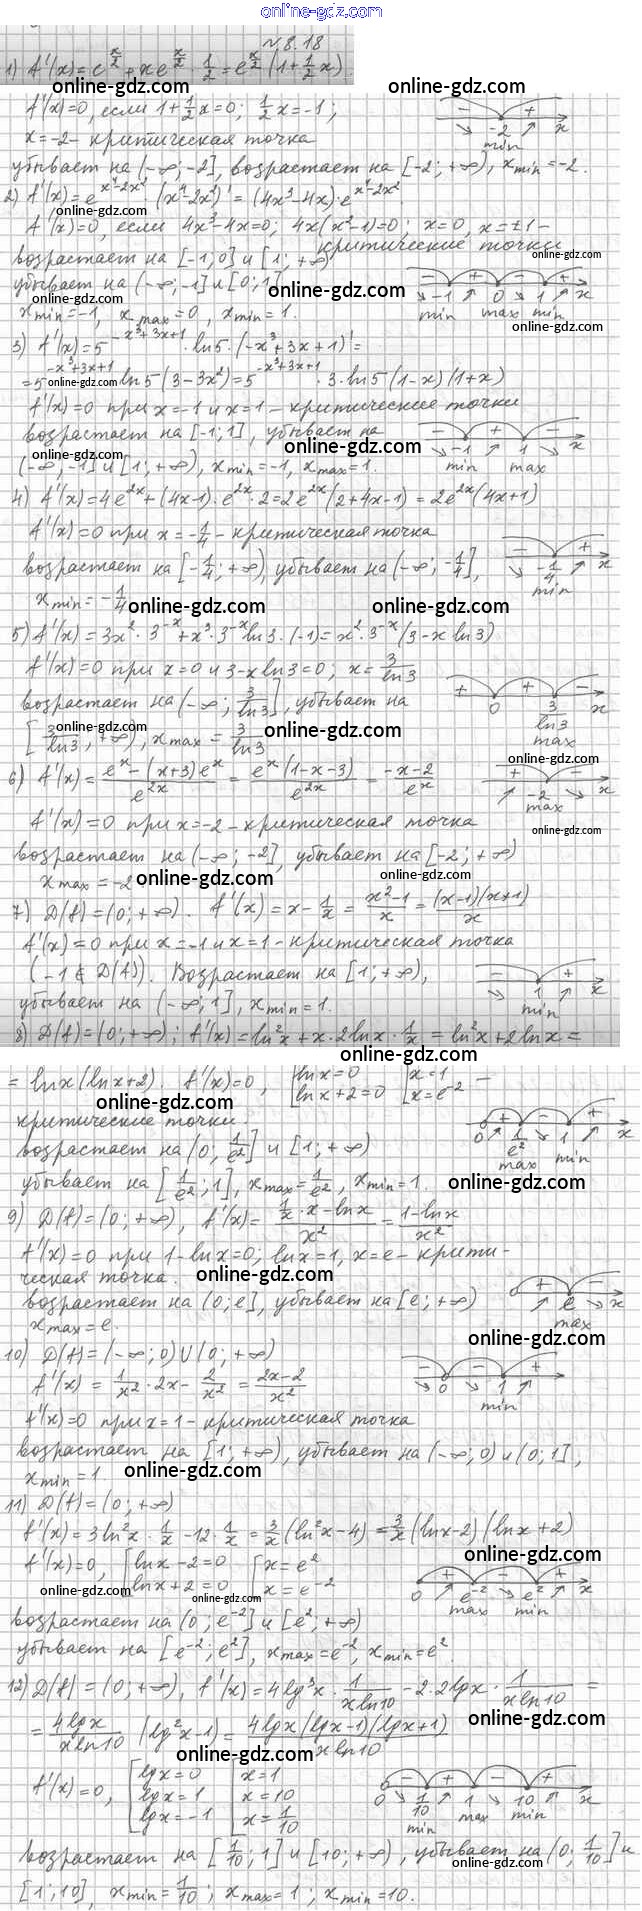 online-gdz.com
№ 8.18
1) A'(x) = e^{x/2} + x e^{x/2} · 1/2 = e^{x/2} (1 + 1/2 x).
online-gdz.com online-gdz.com
A'(x)=0, если 1+1/2 x=0; 1/2 x=-1;
x=-2 - критическая точка
- + -2 min x
убывает на (-∞; -2], возрастает на [-2; +∞), x min = -2.
2) A'(x) = e^{x⁴-2x²} · (x⁴-2x²)' = (4x³-4x)·e^{x⁴-2x²}
online-gdz.com
A'(x)=0, если 4x³-4x=0; 4x(x²-1)=0; x=0, x=±1 -
online-gdz.com критические точки
возрастает на [-1; 0] и [1; +∞)
убывает на (-∞; -1] и [0; 1]
- + - + -1 0 1 x min max min
online-gdz.com online-gdz.com
x min = -1, x max = 0, x min = 1.
online-gdz.com
3) A'(x) = 5^{-x³+3x+1} · ln5 · (-x³+3x+1)' =
= 5^{-x³+3x+1} ln5 (3-3x²) = 5^{-x³+3x+1} · 3·ln5 (1-x)(1+x)
online-gdz.com
A'(x)=0 при x=-1 и x=1 - критические точки
возрастает на [-1; 1], убывает на
- + - -1 1 x min max
online-gdz.com online-gdz.com
(-∞; -1] и [1; +∞), x min = -1, x max = 1.
4) A'(x) = 4e^{2x} + (4x-1)·e^{2x}·2 = 2e^{2x}(2+4x-1) = 2e^{2x}(4x+1)
A'(x)=0 при x = -1/4 - критическая точка
возрастает на [-1/4; +∞), убывает на (-∞; -1/4],
- + -1/4 x min
x min = -1/4
online-gdz.com online-gdz.com
5) A'(x) = 3x² · 3^{-x} + x³ · 3^{-x} ln3 · (-1) = x² · 3^{-x} (3 - x ln3)
A'(x)=0 при x=0 и 3-x ln3=0; x = 3/ln3
возрастает на (-∞; 3/ln3], убывает на
+ + - 0 3/ln3 x max
online-gdz.com online-gdz.com
[3/ln3; +∞), x max = 3/ln3
6) A'(x) = (e^x - (x+3)e^x)/e^{2x} = e^x(1-x-3)/e^{2x} = (-x-2)/e^x
+ - -2 x max
A'(x)=0 при x=-2 - критическая точка
online-gdz.com
возрастает на (-∞; -2], убывает на [-2; +∞)
x max = -2
online-gdz.com online-gdz.com
7) D(f) = (0; +∞). A'(x) = x - 1/x = (x²-1)/x = (x-1)(x+1)/x
A'(x)=0 при x=-1 и x=1 - критическая точка
(-1 ∉ D(A)). Возрастает на [1; +∞),
- + 1 x min
убывает на (-∞; 1], x min = 1.
8) D(f) = (0; +∞); f'(x) = ln²x + x·2lnx·1/x = ln²x + 2lnx =
online-gdz.com
= lnx(lnx+2). f'(x)=0, [ lnx=0 [ x=1 -
lnx+2=0 x=e^{-2}
online-gdz.com
критические точки
+ - + 0 1/e² 1 x max min
возрастает на (0; 1/e²] и [1; +∞)
убывает на [1/e²; 1], x max = 1/e², x min = 1.
online-gdz.com
9) D(f) = (0; +∞), f'(x) = (1/x · x - lnx)/x² = (1-lnx)/x²
f'(x)=0 при 1-lnx=0; lnx=1, x=e - крити-
ческая точка.
online-gdz.com
+ - e x max
возрастает на (0; e], убывает на [e; +∞)
x max = e.
online-gdz.com
10) D(f) = (-∞; 0) ∪ (0; +∞)
f'(x) = 1/x² · 2x - 2/x² = (2x-2)/x²
- - + 0 1 x min
f'(x)=0 при x=1 - критическая точка
возрастает на [1; +∞), убывает на (-∞; 0) и (0; 1],
x min = 1.
online-gdz.com
11) D(f) = (0; +∞)
f'(x) = 3ln²x · 1/x - 12 · 1/x = 3/x (ln²x-4) = 3/x (lnx-2)(lnx+2)
online-gdz.com
f'(x)=0, [ lnx-2=0 [ x=e²
lnx+2=0 x=e^{-2}
online-gdz.com online-gdz.com
+ - + 0 e^{-2} e² x max min
возрастает на (0; e^{-2}] и [e²; +∞)
убывает на [e^{-2}; e²], x max = e^{-2}, x min = e².
12) D(f) = (0; +∞), f'(x) = 4lg³x · 1/(x ln10) - 2·2lgx · 1/(x ln10) =
online-gdz.com
= 4lgx/(x ln10) (lg²x-1) = 4lgx(lgx-1)(lgx+1)/(x ln10)
online-gdz.com
f'(x)=0, [ lgx=0 [ x=1
lgx=1 x=10
lgx=-1 x=1/10
- + - + 0 1/10 1 10 x min max min
возрастает на [1/10; 1] и [10; +∞), убывает на (0; 1/10] и
online-gdz.com
[1; 10], x min = 1/10; x max = 1; x min = 10.